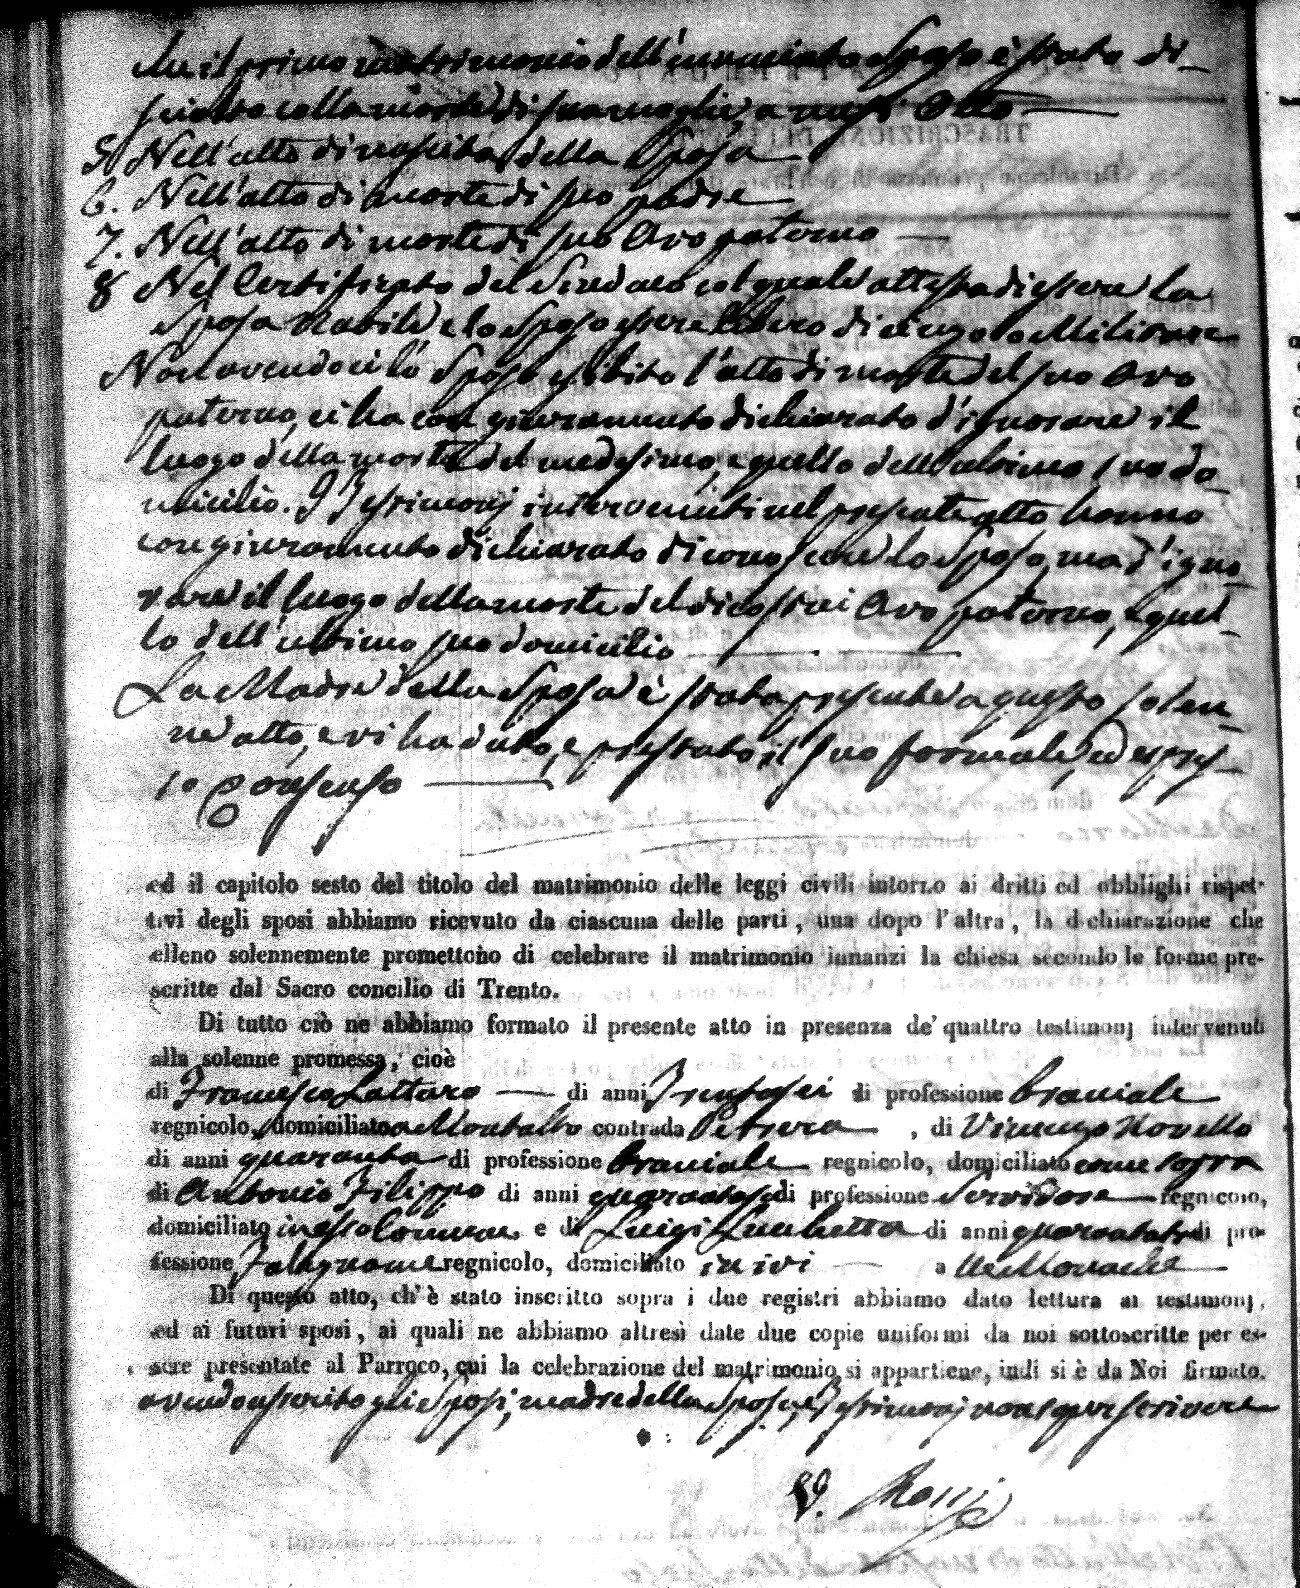 che il primo matrimonio dell'enunciato Sposo è stato di_
sciolto colla morte di sua moglie, a nuss Otto
5. Nell'atto di nascita della Sposa
6. Nell'atto di morte di suo padre
7. Nell'atto di morte di suo Avo paterno
8 Nel Certificato del Sindaco col quale attesta di essere la
Sposa Nubile, e lo Sposo essere libero di vincolo Militare
Non avendoci lo Sposo esibito l'atto di morte del suo Avo
paterno, ci ha con giuramento dichiarato d'ignorare il
luogo della morte del medesimo, e quello dell'ultimo suo do_
micilio. I Testimonj intervenuti nel presente atto hanno
con giuramento dichiarato di conoscere lo Sposo, ma d'igno_
rare il luogo della morte del di costui Avo paterno, e quel_
lo dell'ultimo suo domicilio
La Madre della Sposa è stata presente a questo solen_
ne atto, e vi ha dato, e prestato il suo formale, ed espres_
so Consenso
ed il capitolo sesto del titolo del matrimonio delle leggi civili intorno ai dritti ed obblighi rispet-
tivi degli sposi abbiamo ricevuto da ciascuna delle parti, una dopo l'altra, la dichiarazione che
elleno solennemente promettono di celebrare il matrimonio innanzi la chiesa secondo le forme pre-
scritte dal Sacro concilio di Trento.
Di tutto ciò ne abbiamo formato il presente atto in presenza de' quattro testimonj intervenuti
alla solenne promessa, cioè
di Francesco Lattaro di anni Trentasei di professione braciale
regnicolo, domiciliato a Montalto contrada Petrera, di Vincenzo Novello
di anni quaranta di professione braciale regnicolo, domiciliato come sopra
di Antonio Filippo di anni quarantasei di professione Servidore regnicolo,
domiciliato in esso Comune, e di Luigi Luchetta di anni quarantatre di pro-
fessione Falegname regnicolo, domiciliato in ivi a lle Monache
Di questo atto, ch'è stato inscritto sopra i due registri abbiamo dato lettura ai testimonj,
ed ai futuri sposi, ai quali ne abbiamo altresì date due copie uniformi da noi sottoscritte per es-
sere presentate al Parroco, cui la celebrazione del matrimonio si appartiene, indi si è da Noi firmato.
avendo asserito gli Sposi, madre della Sposa, e Testimonj non saper scrivere
Rossi